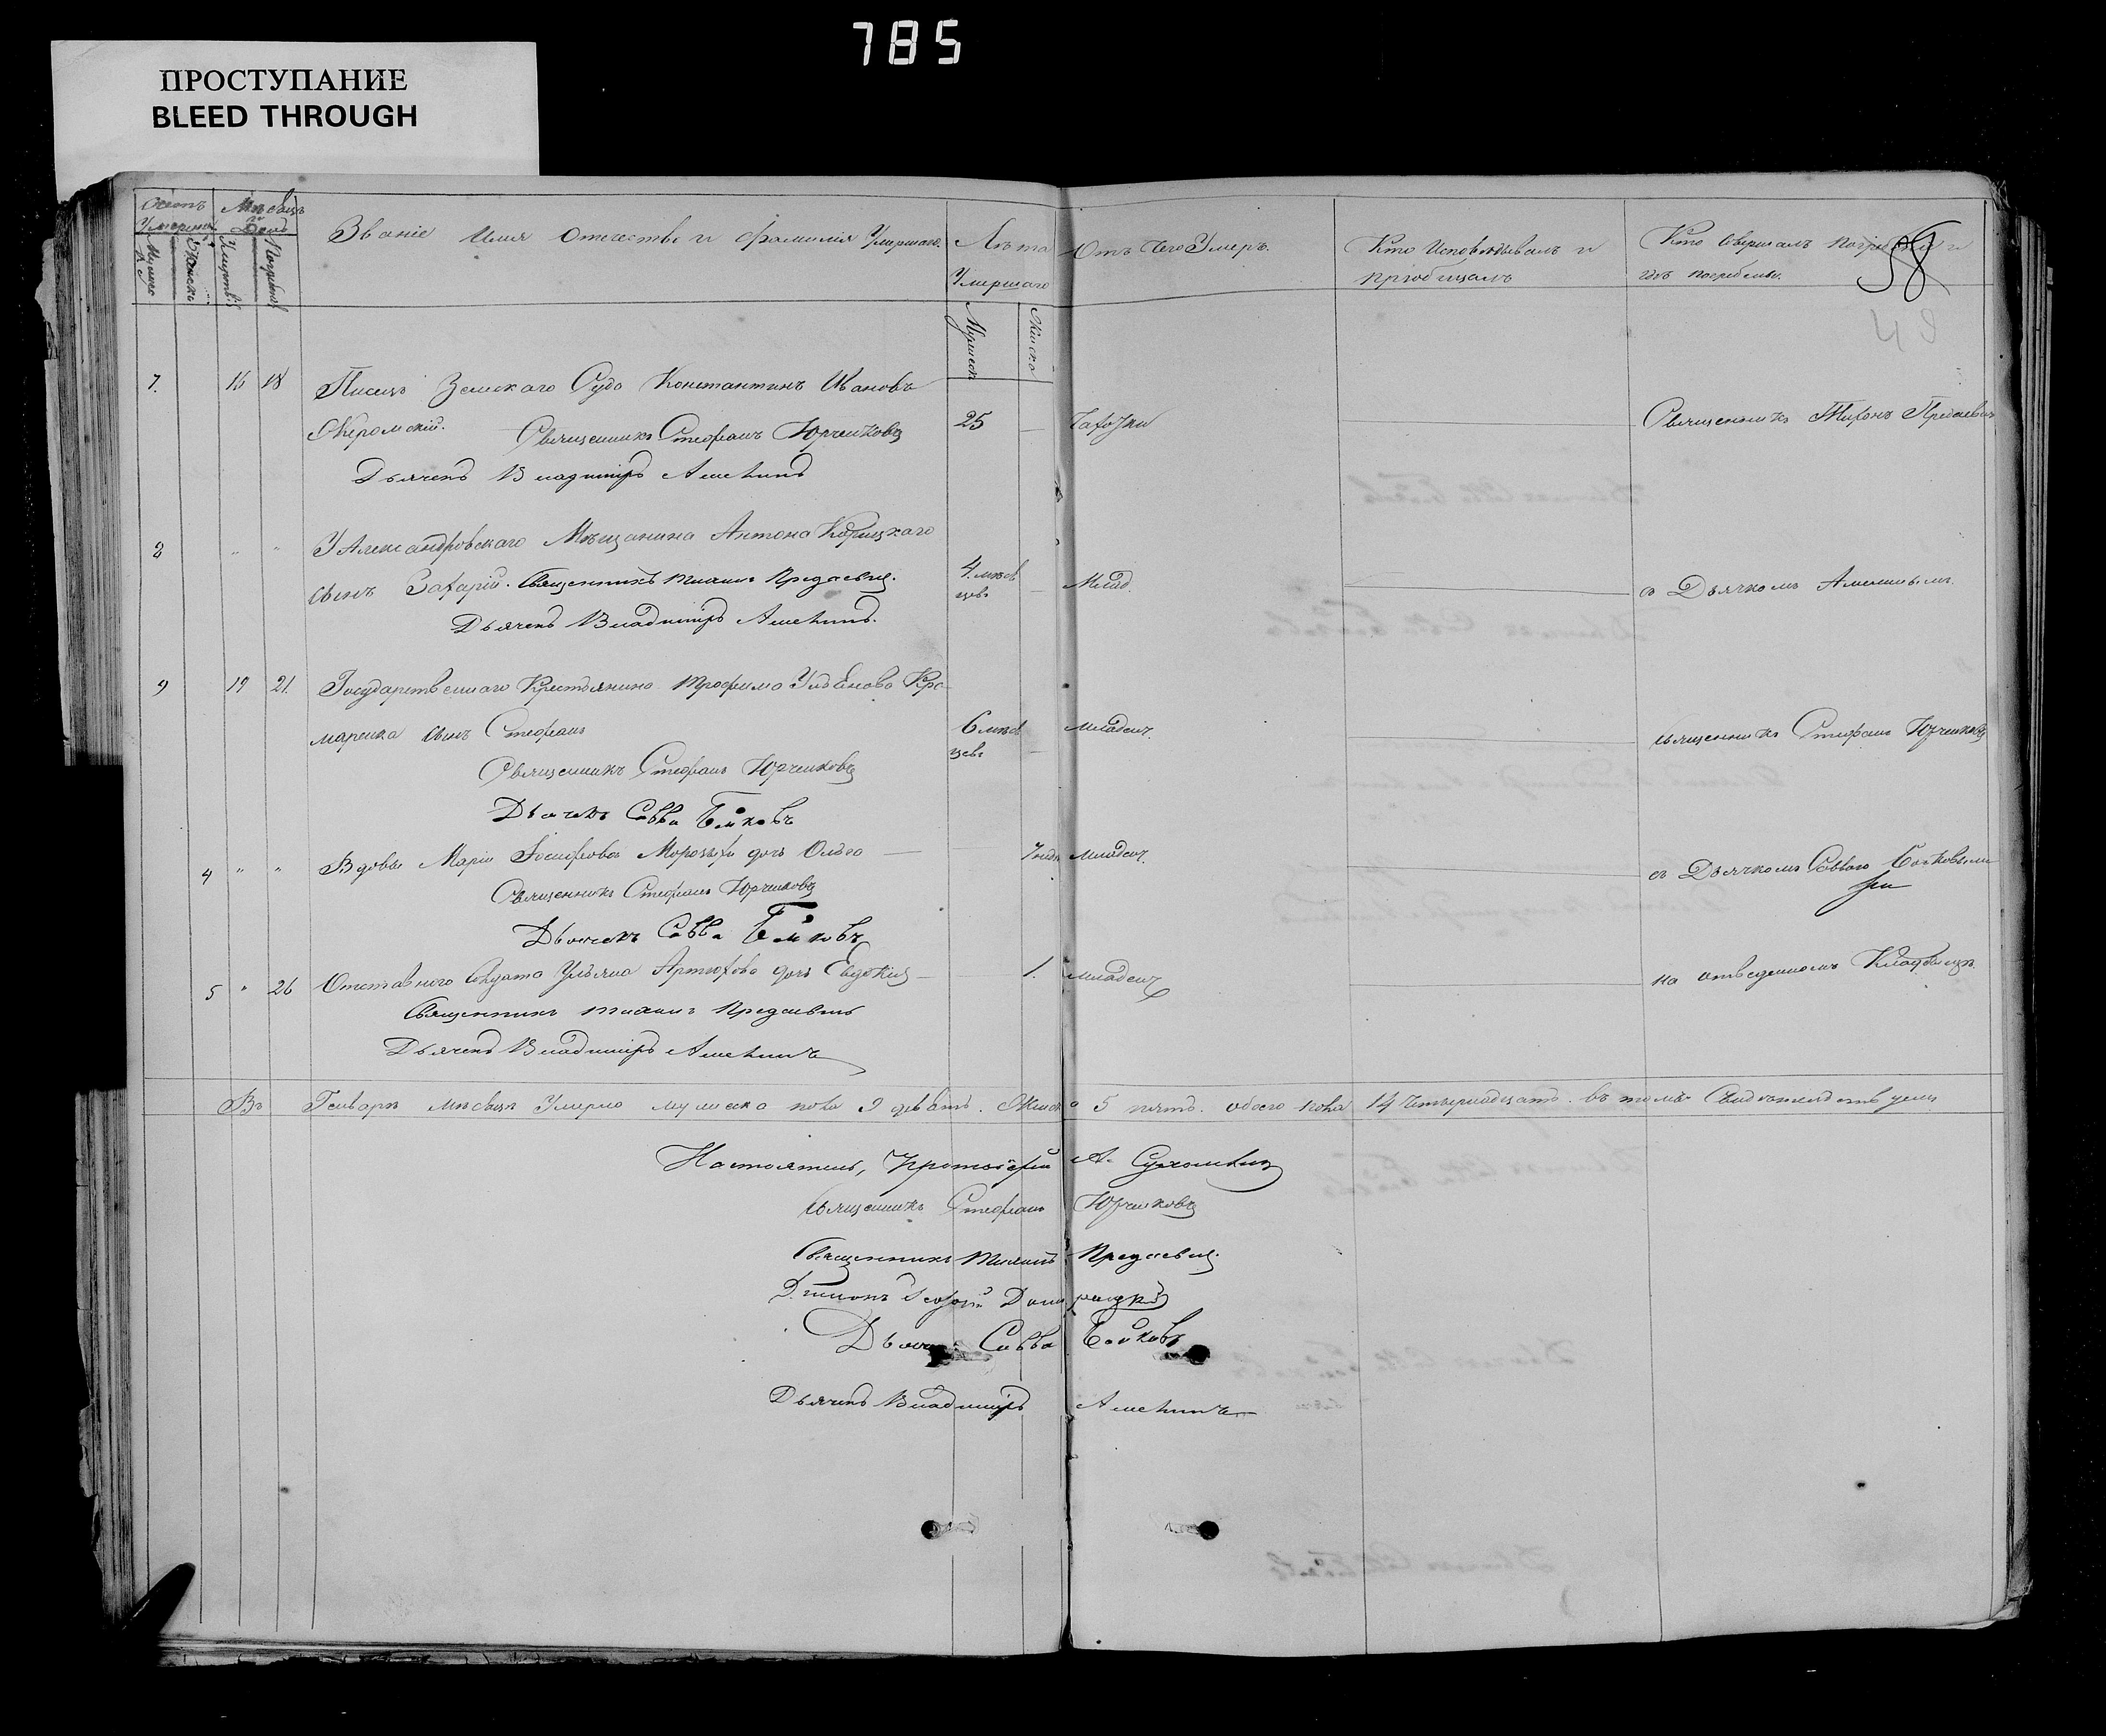 785
ПРОСТУПАНИЕ
BLEED THROUGH
Счетъ Умершихъ
Мѣсяцъ и День
Званіе Имя Отечество и фамилія Умершаго.
Лѣта Умершаго
Отъ Чего Умеръ.
Кто Исповѣдывалъ и пріобщалъ
Кто Совершалъ погребеніе и гдѣ погребены.
58
Мужеск
Женска
7. 16 18 Писецъ Земскаго Суда Константинъ Ивановъ
25 Чахотки Священникъ Тихонъ
Священникъ Стефанъ Юрченковъ
Дьячекъ Владиміръ Амелинъ
8 " " Александровскаго Мѣщанина Антона
сынъ Захарій. Священникъ Тихонъ 4. мѣся цевъ Млад. съ Дьячкомъ Амелинымъ.
Дьячекъ Владиміръ Амелинъ.
9 19 21. Государственнаго Крестьянина Трофима Кра
маренка сынъ Стефанъ 6 мѣся цевъ Младенч. священникъ Стефанъ Юрченковъ
Священникъ Стефанъ Юрченковъ
Дьячекъ Савва Бойковъ
4 " " Вдовы Маріи Іосифовой дочь Ольга Младенч. съ Дьячкомъ Саввою Бойковымъ
Священникъ Стефанъ Юрченковъ
Дьячекъ Савва Бойковъ
5 " 26 Отставного Солдата Ульяна Артюхова дочь Евдокія 1. младенч на отведенномъ Кладбищѣ.
Священникъ Тихонъ
Дьячекъ Владиміръ Амелинъ
Въ Генварѣ мѣсяцѣ Умерло мужеска пола 9 девять. Женска 5 пять. обоего пола 14 Четырнадцать. въ томъ Свидѣтельствуемъ
Настоятель, Протоіерей А.
Священникъ Стефанъ Юрченковъ
Священникъ Тихонъ
Діаконъ Георгій
Дьячекъ Савва Бойковъ
Дьячекъ Владиміръ Амелинъ